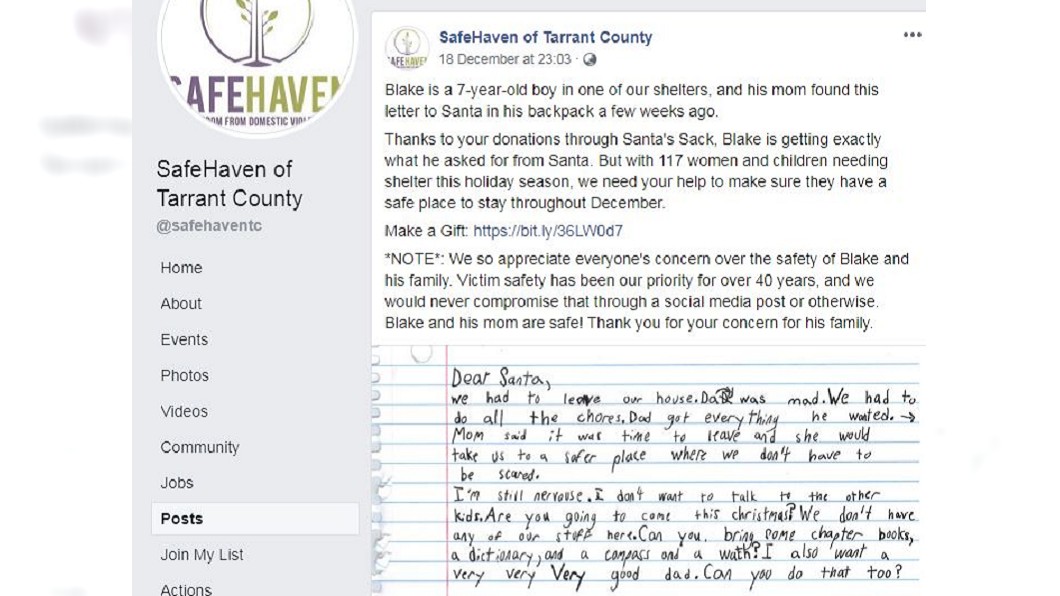 AFEHAVE
OM FROM DOMESTIC VIOL
SafeHaven of
Tarrant County
@safehaventc
Home
About
Events
Photos
Videos
Community
Jobs
Posts
Join My List
Actions
AFEHAVE
SafeHaven of Tarrant County
18 December at 23:03 ·
Blake is a 7-year-old boy in one of our shelters, and his mom found this
letter to Santa in his backpack a few weeks ago.
Thanks to your donations through Santa's Sack, Blake is getting exactly
what he asked for from Santa. But with 117 women and children needing
shelter this holiday season, we need your help to make sure they have a
safe place to stay throughout December.
Make a Gift: https://bit.ly/36LW0d7
*NOTE*: We so appreciate everyone's concern over the safety of Blake and
his family. Victim safety has been our priority for over 40 years, and we
would never compromise that through a social media post or otherwise.
Blake and his mom are safe! Thank you for your concern for his family.
Dear Santa,
we had to leave our house. Dad was mad. We had to
do all the chores. Dad got everything he wanted. →
Mom said it was time to leave and she would
take us to a safer place where we don't have to
be scared.
I'm still nervouse. I don't want to talk to the other
kids. Are you going to come this christmas? We don't have
any of our stuff here. Can you bring some chapter books,
a dictionary, and a compass and a wath? I also want a
very very very good dad. Can you do that too?